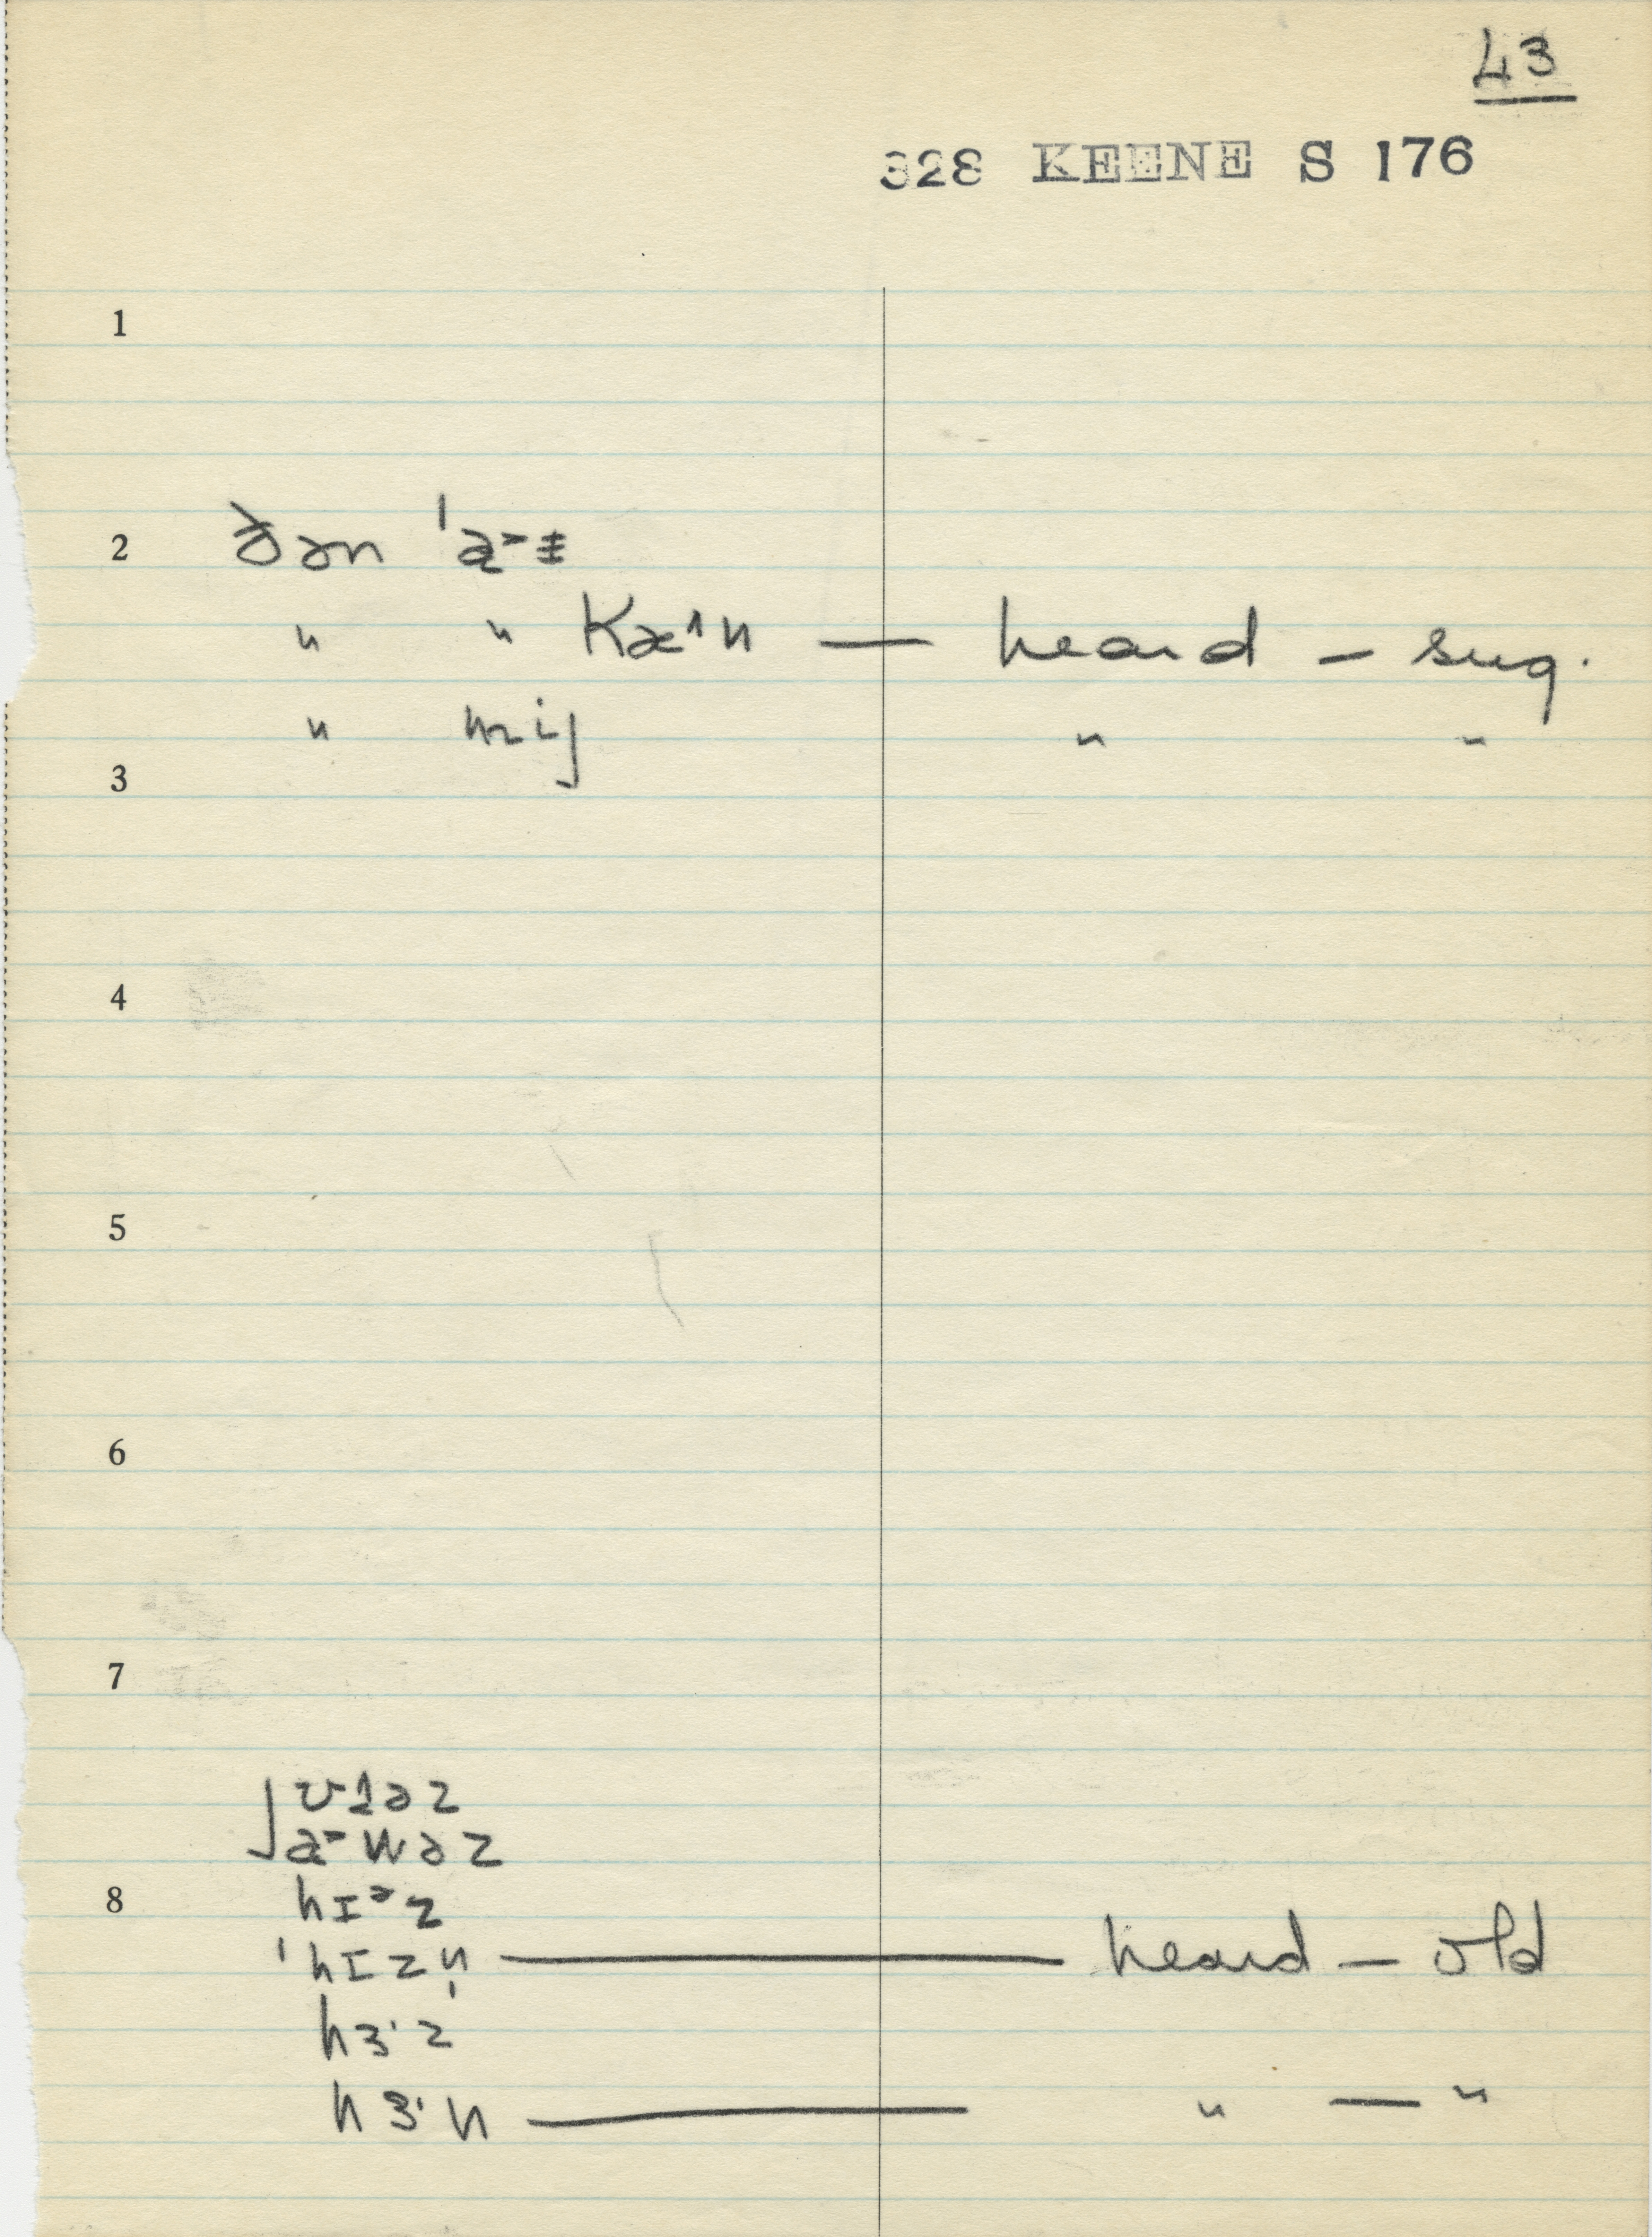 43
328 KEENE S 176
1
2 ðən ˈa˃ɨ
" " Kæ˄n — heard – sug.
" mij " "
3
4
5
6
7
jʊɚəz
ja˃wəz
8 hɪᵊz
ˈhɪzn̩ — heard – old
hɜ˙z
hɜ˙n — " — "